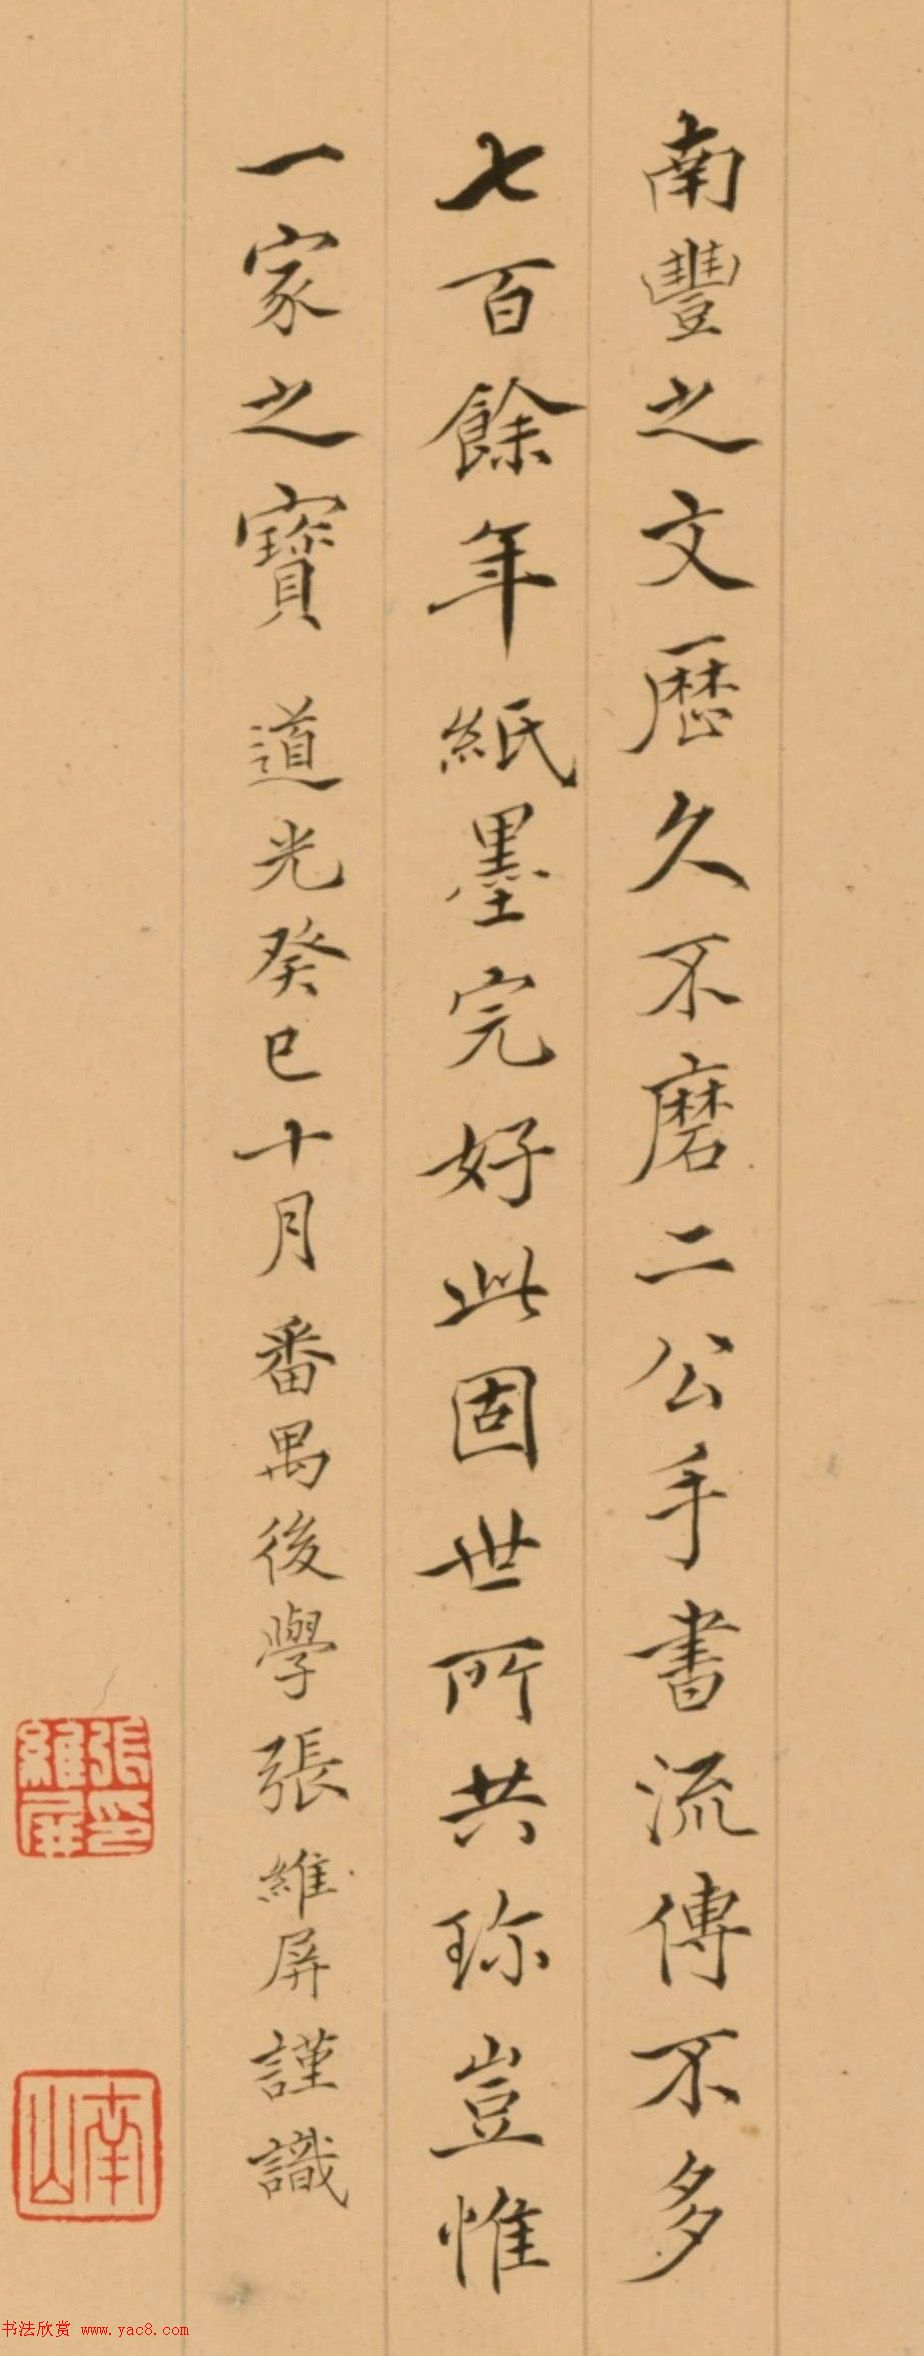 南豐之文歷久不磨二公手書流傳不多
七百餘年紙墨完好此固世所共珎豈惟
一家之寶 道光癸巳十月番禺後學張維屏謹識
張維屏印
南山
书法欣赏 www.yac8.com